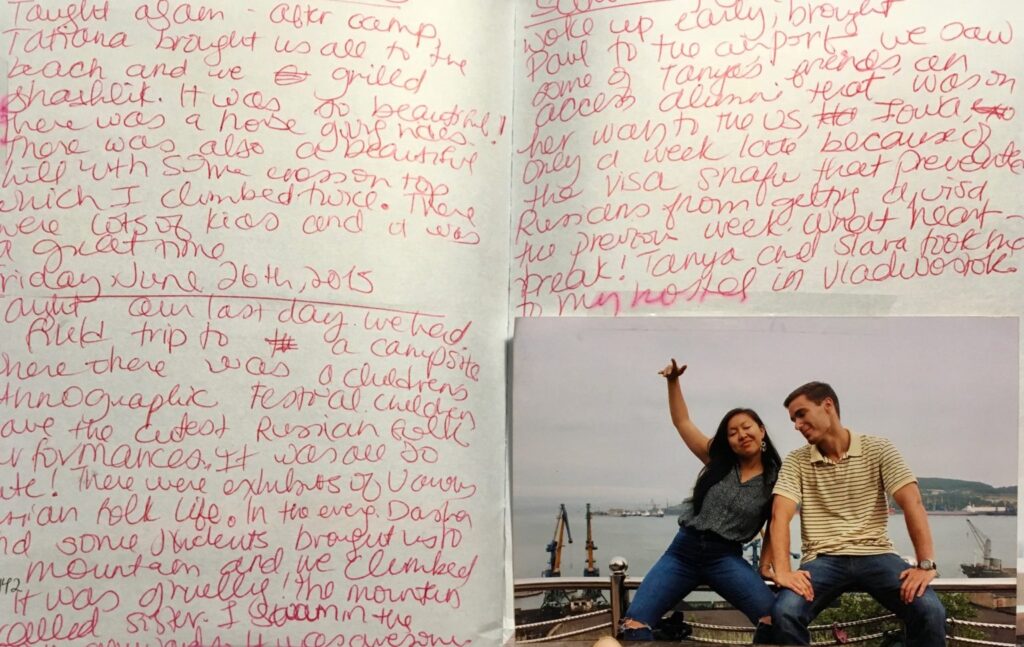 Taught again - after camp,
Tatiana brought us all to the
beach and we grilled
shashlik. It was so beautiful!
There was a
There was also a beautiful
hill with some cross on top
which I climbed twice. There
were lots of kids and it was
a great time
Friday June 26th, 2015
aught our last day. we had
field trip to a campsite
here there was a childrens
thnographic festival. children
ave the cutest Russian folk
erformances. It was all so
ute! There were exhibits of various
ssian folk life. In the eve Dasha
nd some students brought us to
mountain and we climbed
142
It was gruelly! The mountain
called sister. I swam in the
It was awesome
woke up early, brought
Paul to the airport we saw
some of Tanya's friends, an
access alumni that was on
her way to the US, Iowa,
only a week late because of
the visa snafu that prevente
Russians from getting a visa
the previous week. what heart-
break! Tanya and Slava took me
to my hostel in Vladivostok.